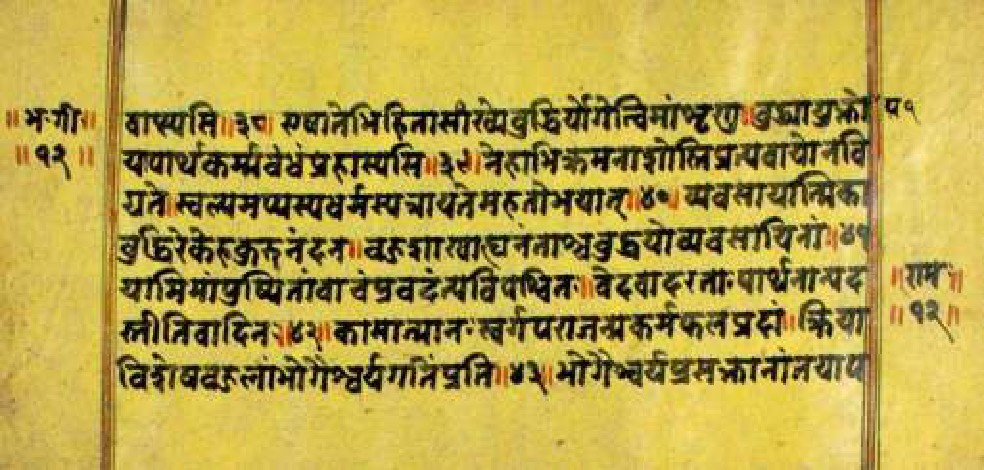 ॥भ॰गी॥
॥१२॥
वाप्स्यसि॥३८ एषातेभिहितासांख्येबुद्धिर्योगेत्विमांशृणु॥बुद्ध्यायुक्तो
ययापार्थकर्म्मबंधंप्रहास्यसि॥३९॥नेहाभिक्रमनाशोस्तिप्रत्यवायोनवि
द्यते॥स्वल्पमप्यस्यधर्मस्यत्रायतेमहतोभयात्॥४०॥व्यवसायात्मिका
बुद्धिरेकेहकुरुनंदन॥बहुशाखाह्यनंताश्चबुद्धयोव्यवसायिनां॥४१
यामिमांपुष्पितांवाचंप्रवदंत्यविपश्चितः॥वेदवादरताःपार्थनान्यद
स्तीतिवादिनः॥४२॥कामात्मानःस्वर्गपराजन्मकर्मफलप्रदां॥क्रिया
विशेषबहुलांभोगैश्वर्यगतिंप्रति॥४३॥भोगैश्वर्यप्रसक्तानांतयाप
॥राम॥
॥१२॥